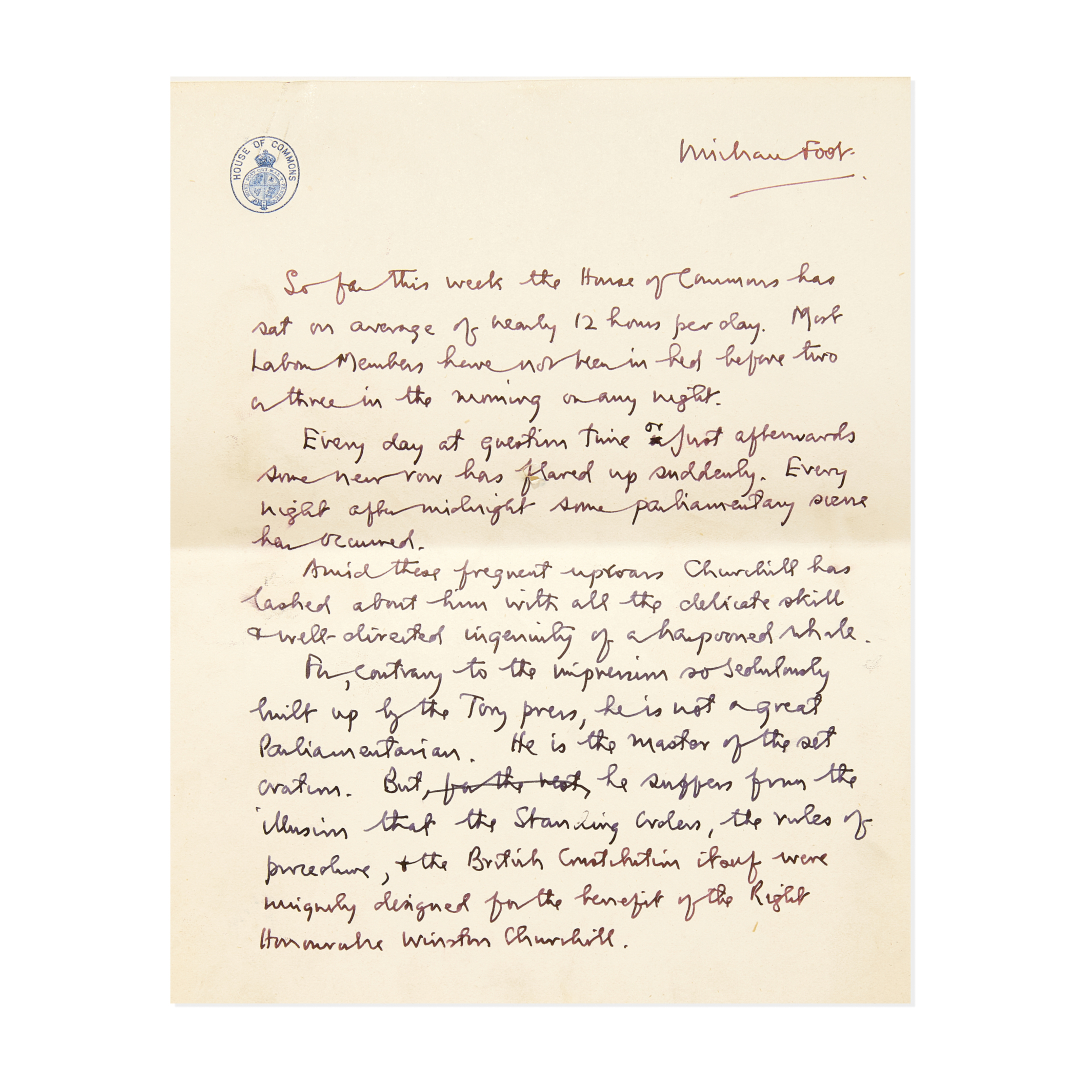 HOUSE OF COMMONS
Michael Foot.
So far this week the House of Commons has
sat on average of nearly 12 hours per day. Most
Labour Members have not been in bed before two
or three in the morning on any night.
Every day at question time or just afterwards
some new row has flared up suddenly. Every
night after midnight some parliamentary scene
has occurred.
Amid these frequent uproars Churchill has
lashed about him with all the delicate skill
& well-directed ingenuity of a harpooned whale.
For, contrary to the impression so sedulously
built up by the Tory press, he is not a great
Parliamentarian. He is the master of the set
oration. But, for the rest, he suffers from the
illusion that the Standing Orders, the rules of
procedure, & the British Constitution itself were
uniquely designed for the benefit of the Right
Honourable Winston Churchill.